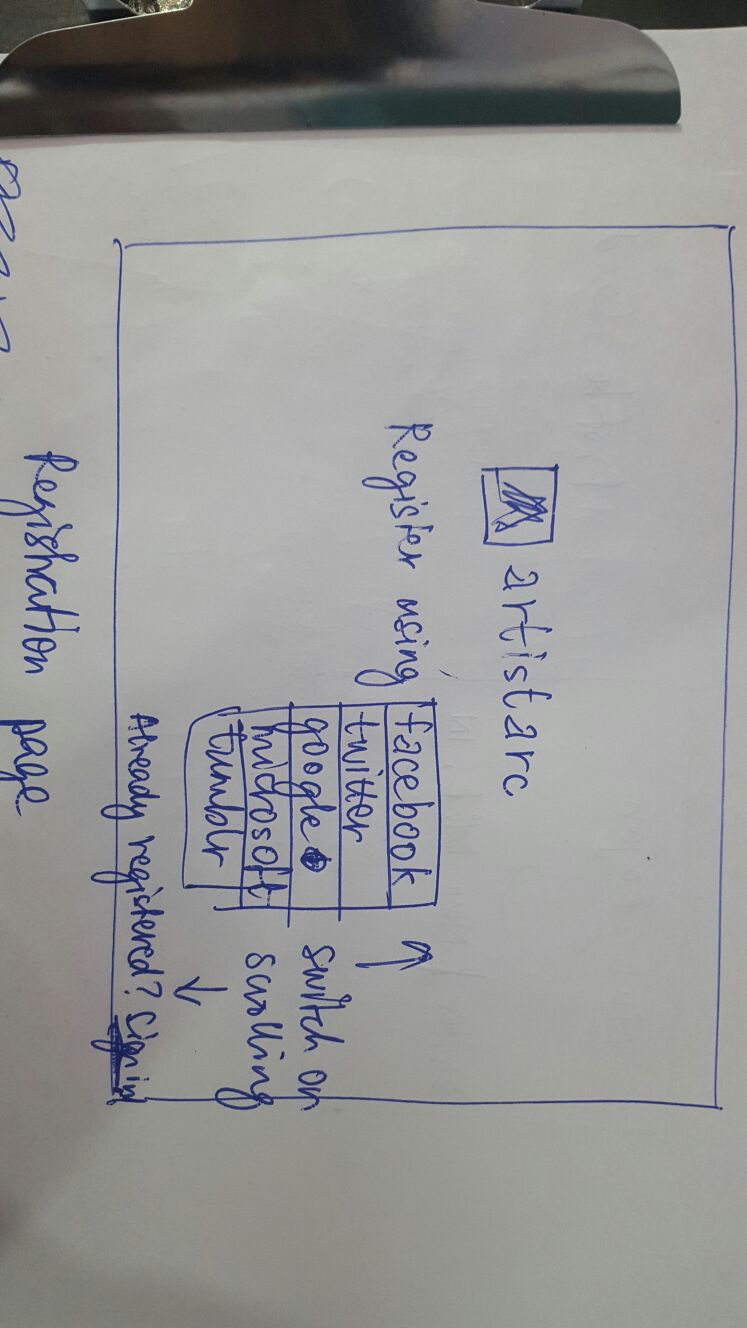 artistarc
Register using
facebook
twitter
google
microsoft
tumblr
switch on
scrolling
Already registered? Sign in
Registration page